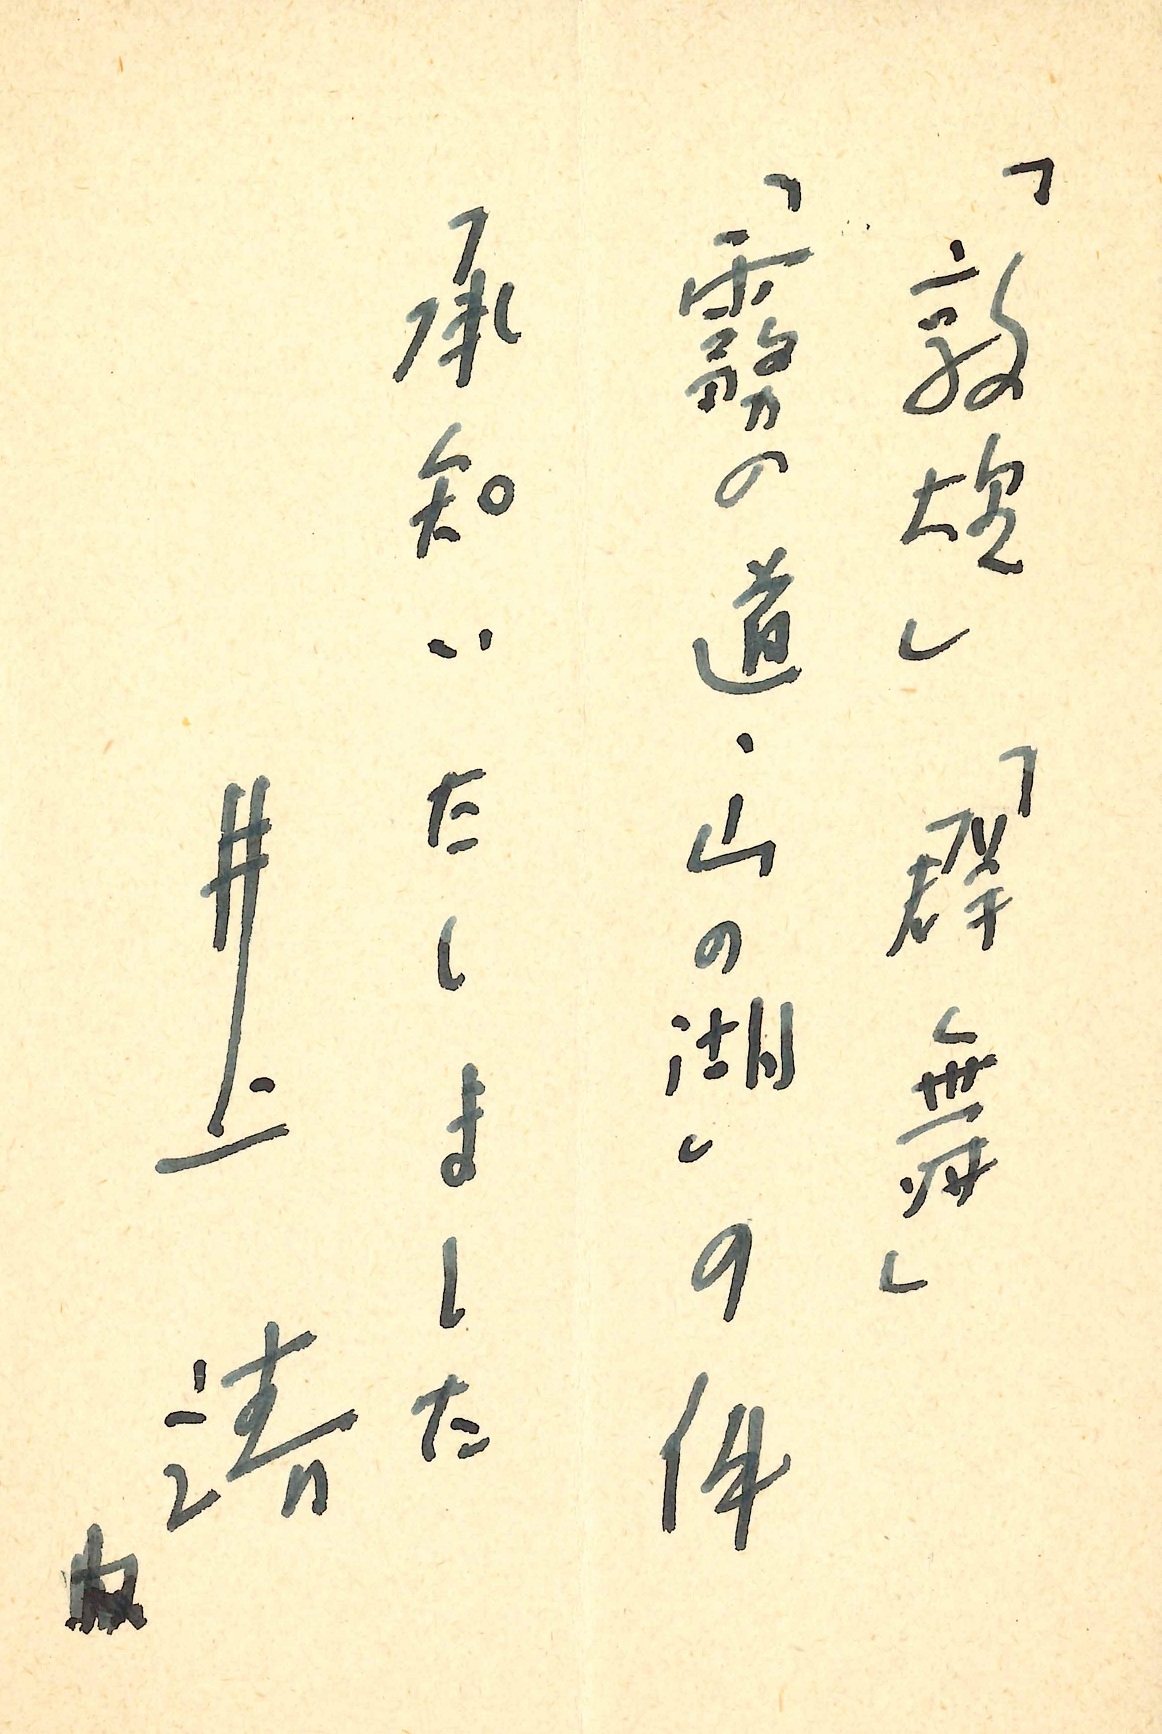 「敦煌」「群舞」
「霧の道・山の湖」の件
承知いたしました
井上 靖